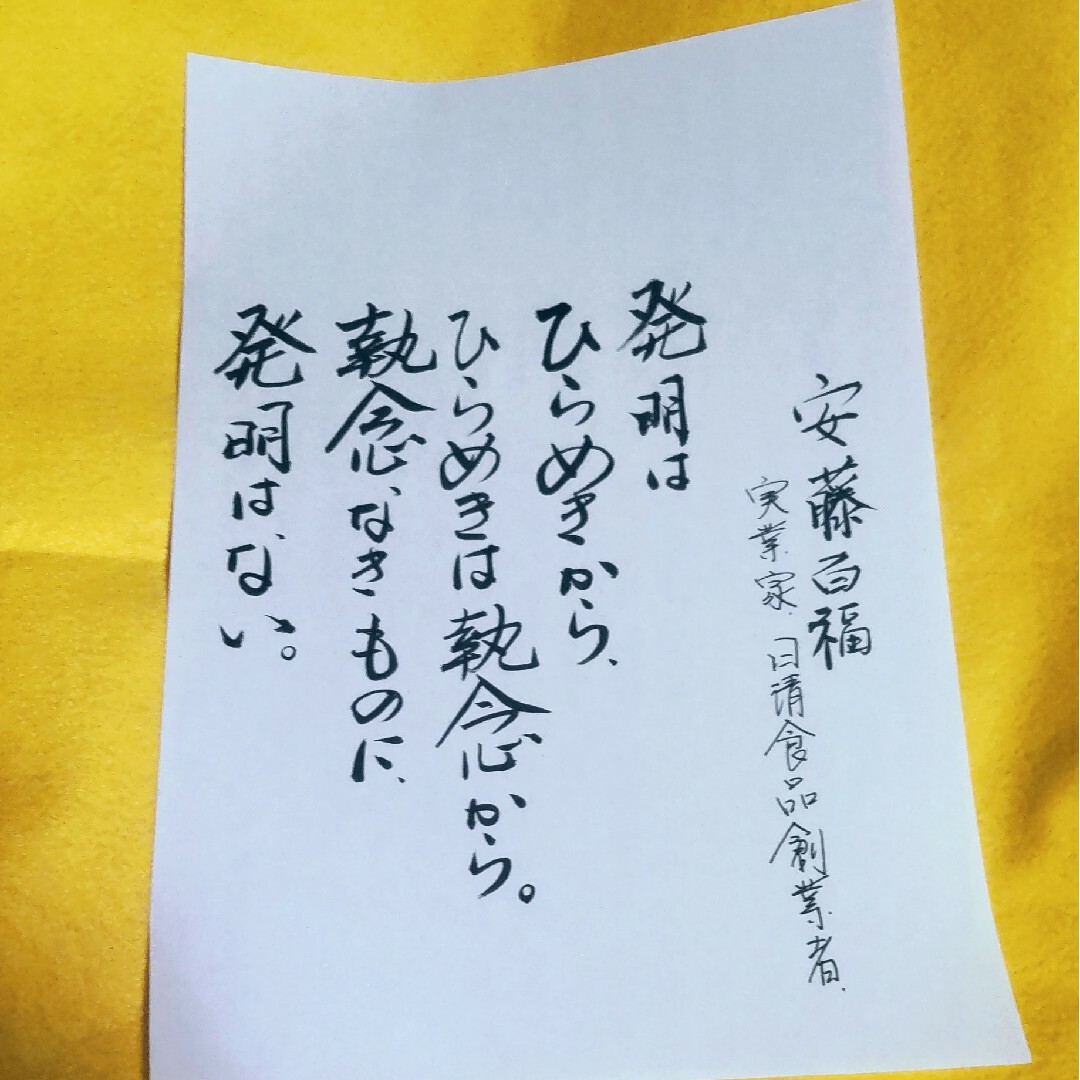 安藤百福
実業家.日清食品創業者.
発明は
ひらめきから、
ひらめきは執念から。
執念なきものに、
発明はない。